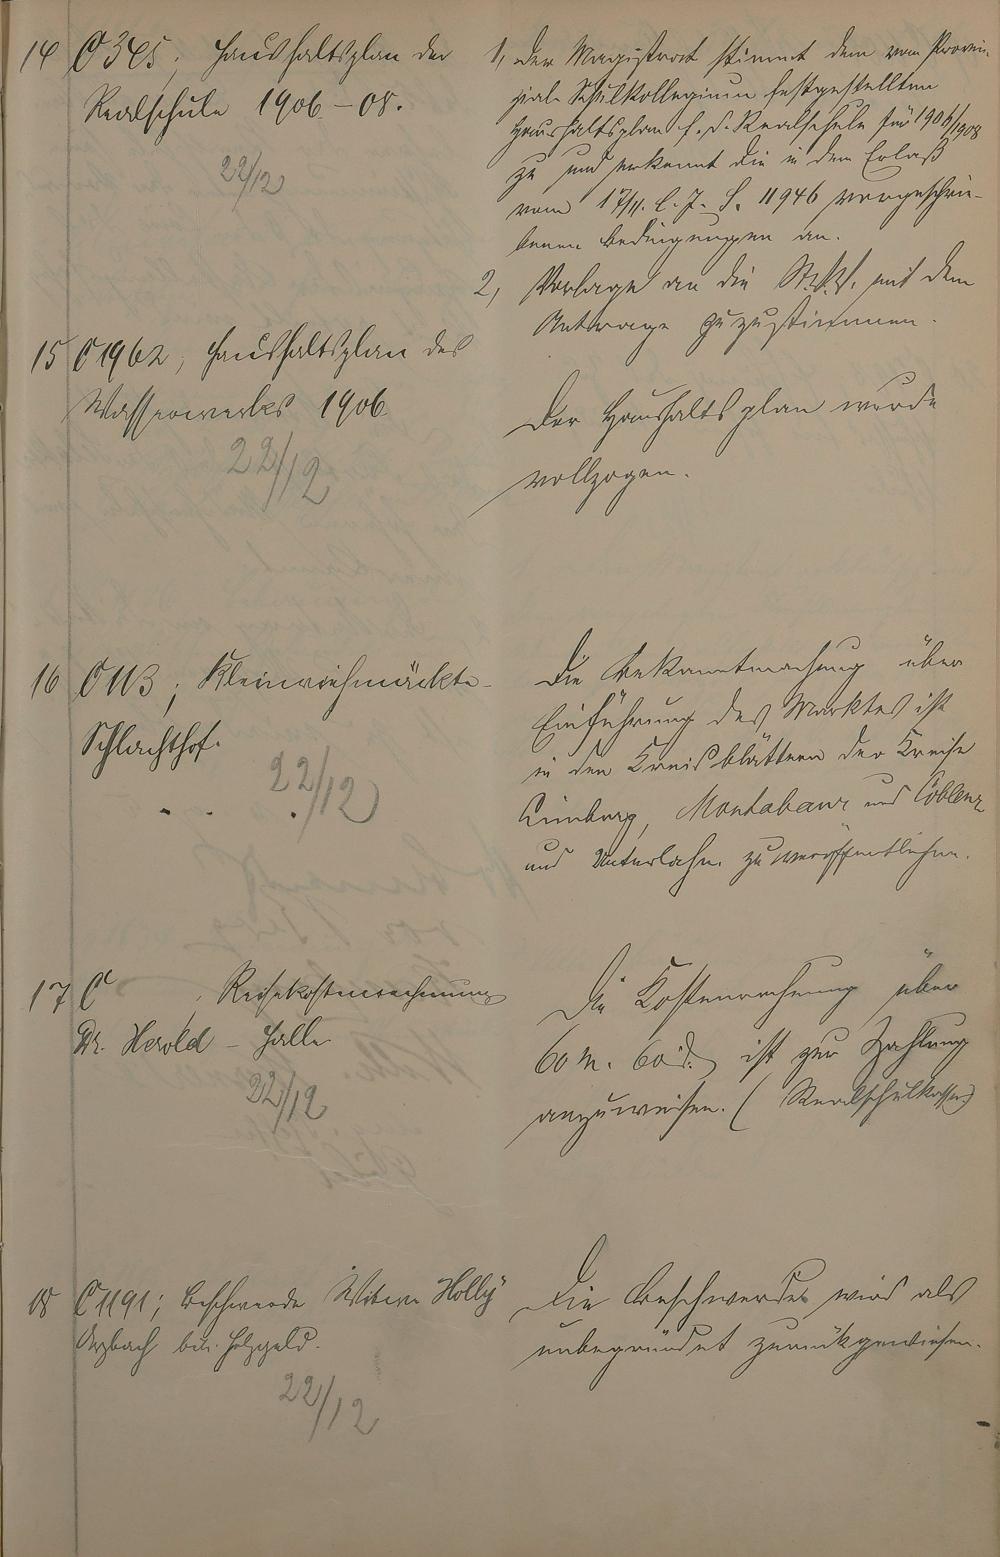 14 C 345; Haushaltsplan der
Realschule 1906-08.
22/12
1, Der Magistrat stimmt dem vom Provin-
zial-Schulkollegium festgestellten
Haushaltsplan f. d. Realschule für 1906/1908
zu und erkennt die in dem Erlaß
vom 17/11. l. J. S. 11946 vorgeschrie-
benen Bedingungen an.
2, Vorlage an die St. V. mit dem
Antrage zuzustimmen.
15 C 1962, Haushaltsplan des
Wasserwerks 1906
22/12
Der Haushaltsplan wurde
vollzogen.
16 C 113; Kleinviehmärkte-
Schlachthof.
22/12
Die Bekanntmachung über
Einführung des Marktes ist
in den Kreisblättern der Kreise
Limburg, Montabaur und Coblenz
und Unterlahn zu veröffentlichen.
17 C , Reisekostenrechnung
Dr. Herold - Halle
22/12
Die Kostenrechnung über
60 M. 60 d. ist zur Zahlung
anzuweisen. (Realschulkasse)
18 C 1191; Beschwerde Witwe Holly
Arzbach betr. Holzgeld.
22/12
Die Beschwerde wird als
unbegründet zurückgewiesen.